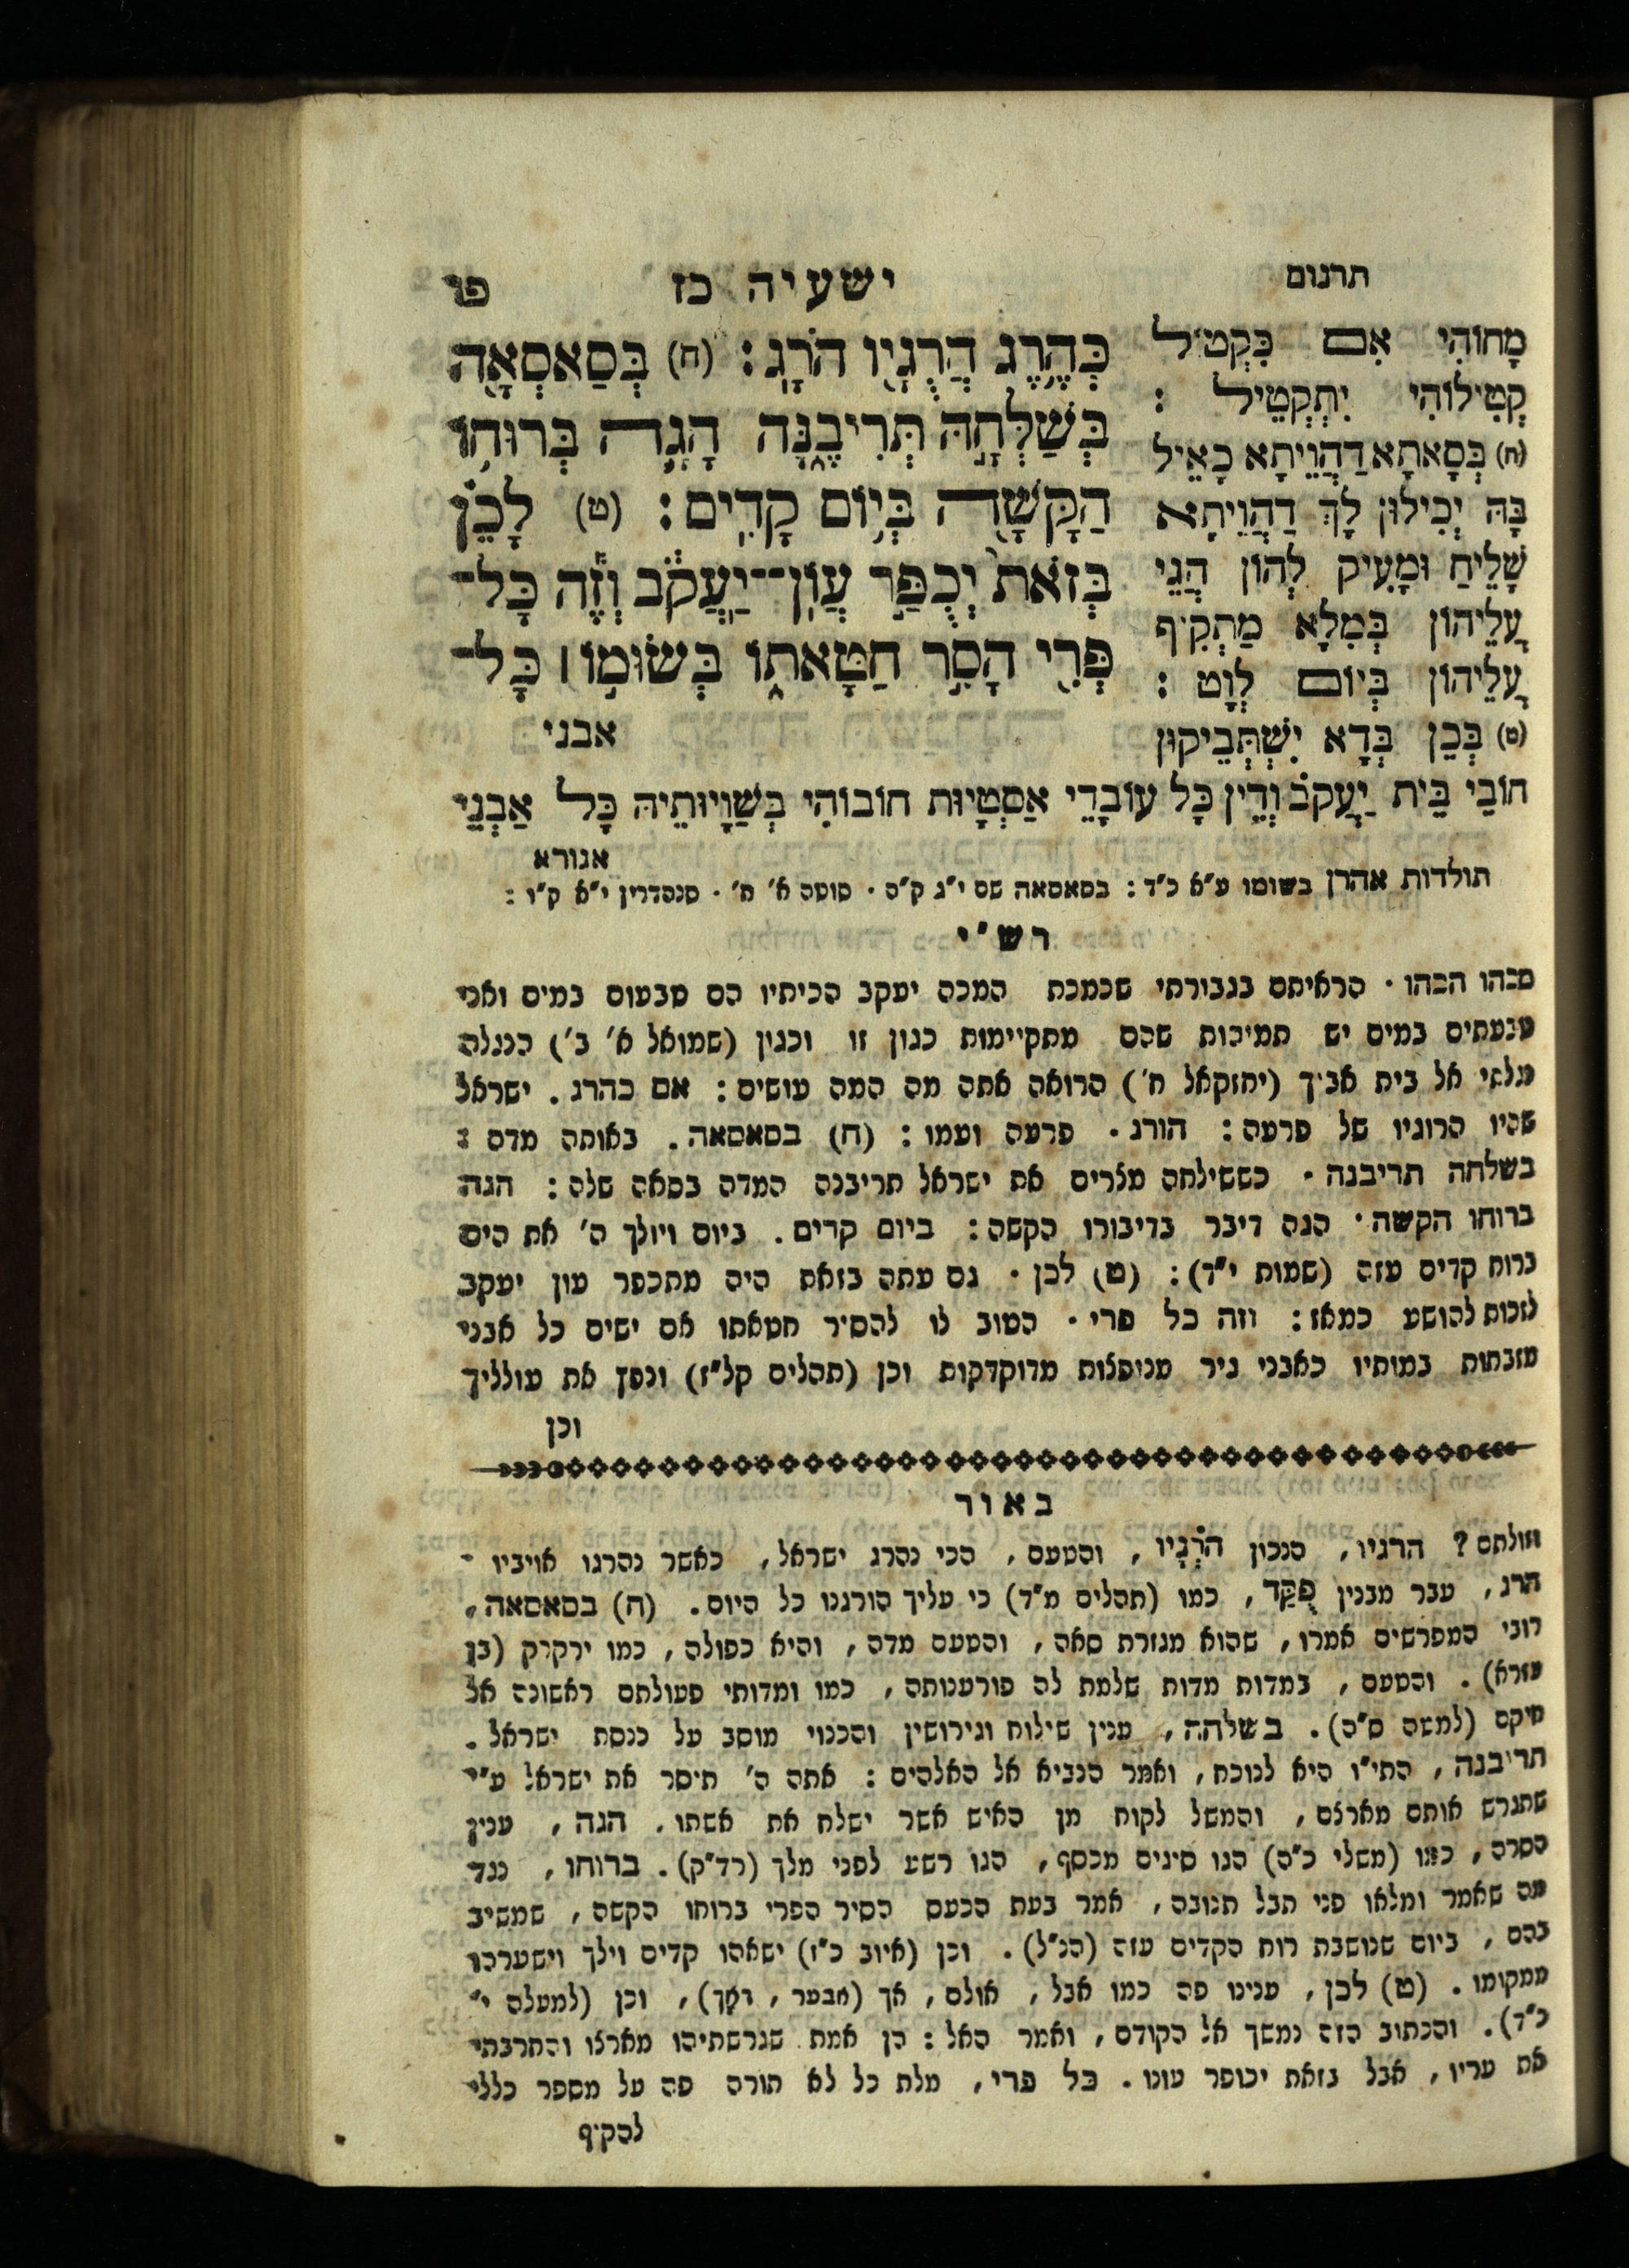 תרגום
ישעיה כז
פו
כְּהֶ֥רֶג הֲרֻגָ֖יו הֹרָֽג׃ (ח) בְּסַאסְּאָ֖ה
בְּשַׁלְחָ֣הּ תְּרִיבֶ֑נָּה הָגָ֛ה בְּרוּח֥וֹ
הַקָּשָׁ֖ה בְּי֥וֹם קָדִֽים׃ (ט) לָכֵ֗ן
בְּזֹאת֙ יְכֻפַּ֣ר עֲוֺֽן־יַעֲקֹ֔ב וְזֶ֕ה כָּל־
פְּרִ֖י הָסִ֣ר חַטָּאת֑וֹ בְּשׂוּמ֣וֹ ׀ כָּל־
אבני
מָחוֹהִי אִם כִּקְטִיל
קְטִילוֹהִי יִתְקְטֵיל :
(ח) בְּסָאתָא דַהֲוֵיתָא כָאֵיל
בָּהּ יְכִילוּן לָךְ דַהֲוֵיתָא
שָׁלֵיחַ וּמָעִיק לְהוֹן הֲגֵי
עֲלֵיהוֹן בְּמִלָא מַתְקִיף
עֲלֵיהוֹן בְּיוֹם לְוָט :
(ט) בְּכֵן בְּדָא יִשְׁתְּבֵיקוּן
חוֹבֵי בֵּית יַעֲקֹב וְדֵין כָּל עוֹבָדֵי אַסְטָיוּת חוֹבוֹהִי בְּשַׁוָיוּתֵיהּ כָּל אַבְנֵי
אגורא
תולדות אהרן בשומו ע״א כ״ד : בסאסאה שם י״ג ק״ה · סוטה א׳ ח׳ · סנהדרין י״א ק״ו :
רש״י
מכהו הכהו · הראיתם בגבורתי שכמכת המכה יעקב הכיתיו הם טבעום במים ואני
טבעתים במים יש תמיהות שהם מתקיימות כגון זו וכגון (שמואל א׳ ב׳) הנגלה
נגלתי אל בית אביך (יחזקאל ח׳) הרואה אתה מה המה עושים : אם כהרג . ישראל
שהיו הרוגיו של פרעה : הורג · פרעה ועמו : (ח) בסאסאה . באותה מדה :
בשלחה תריבנה · כששילחה מצרים את ישראל תריבנה המדה בסאה שלה : הגה
ברוחו הקשה · הגה דיבר בדיבורו הקשה : ביום קדים . ביום ויולך ה׳ את הים
ברוח קדים עזה (שמות י״ד) : (ט) לכן · גם עתה בזאת היה מתכפר עון יעקב
לזכות להושע כמאז : וזה כל פרי · הטוב לו להסיר חטאתו אם ישים כל אבני
מזבחות במותיו כאבני גיר מנופצות מדוקדקות וכן (תהלים קל״ז) ונפץ את עולליך
וכן
באור
זולתם ? הרגיו , הנכון הֹרְגָיו , והטעם , הכי נהרג ישראל , כאשר נהרגו אויביו ·
הרג , עבר מבנין פֻקַד , כמו (תהלים מ״ד) כי עליך הורגנו כל היום . (ח) בסאסאה ,
רובי המפרשים אמרו , שהוא מגזרת סאה , והטעם מדה , והיא כפולה , כמו ירקרק (בן
עזרא) . והטעם , במדות מדות שלמת לה פורענותה , כמו ומדותי פעולתם ראשונה אל
חיקם (למטה ס״ה) . בשלחה , ענין שילוח וגירושין והכנוי מוסב על כנסת ישראל .
תריבנה , התי״ו היא לנוכח , ואמר הנביא אל האלהים : אתה ה׳ תיסר את ישראל ע״י
שתגרש אותם מארצם , והמשל לקוח מן האיש אשר ישלח את אשתו . הגה , ענין
הסרה , כמו (משלי כ״ה) הגו סיגים מכסף , הגו רשע לפני מלך (רד״ק) . ברוחו , נגד
מה שאמר ומלאו פני תבל תנובה , אמר בעת הכעס הסיר הפרי ברוחו הקשה , שמשיב
בהם , ביום שנושבת רוח הקדים עזה (הנ״ל) . וכן (איוב כ״ז) ישאהו קדים וילך וישערהו
ממקומו . (ט) לכן , ענינו פה כמו אבל , אולם , אך (אבער , דאך) , וכן (למעלה י״
כ״ד) . והכתוב הזה נמשך אל הקודם , ואמר האל : הן אמת שגרשתיהו מארצו והחרבתי
את עריו , אבל בזאת יכופר עונו . כל פרי , מלת כל לא תורה פה על מספר כללי
להקיף